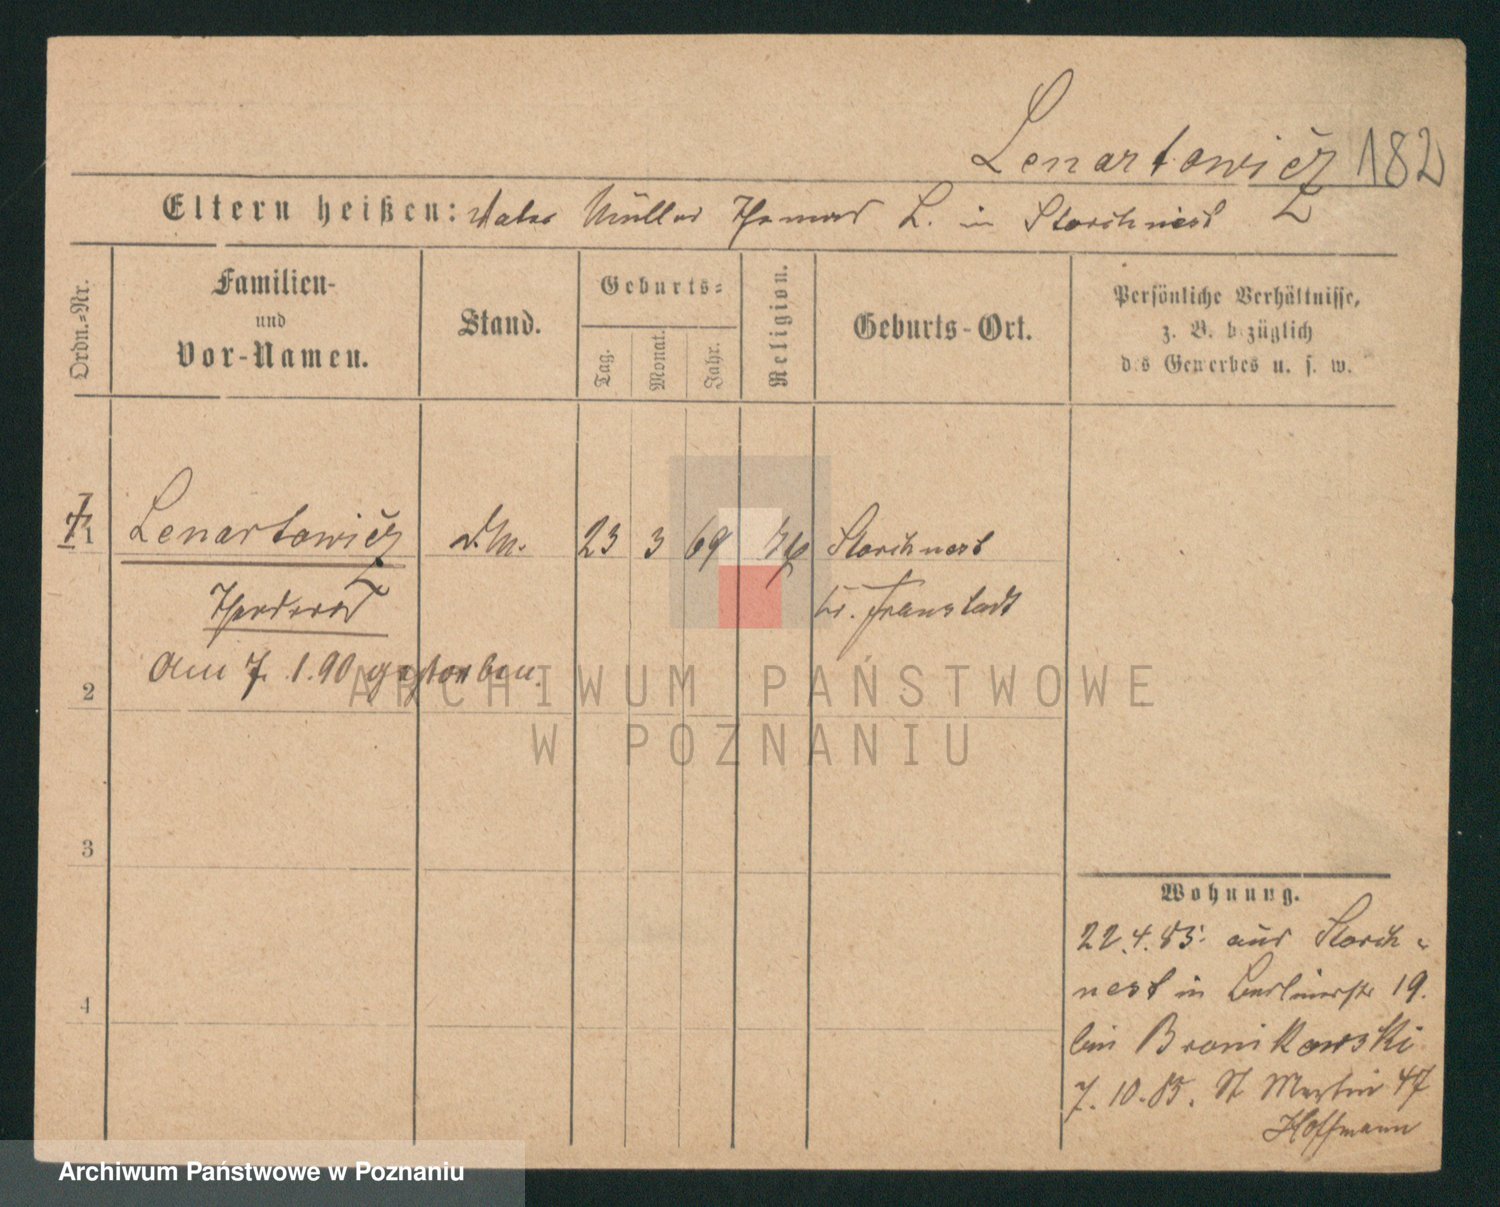 Lenartowicz 182
Eltern heißen: Vater Müller Thomas L. in Storchnest
Ordn.-Nr.
Familien-
und
Vor-Namen.
Stand.
Geburts-
Tag.
Monat.
Jahr.
Religion.
Geburts-Ort.
Persönliche Verhältnisse,
z. B. bezüglich
des Gewerbes u. s. w.
1 Lenartowicz 23 3 69 Storchnest
Kr. Fraustadt
Am 7. 1. 90 gestorben.
2
3
4
Wohnung.
22.4.85. aus Storch-
nest in Berlinerstr 19.
bei Bronikowski
7. 10. 85. St Martin 47
Hoffmann
ARCHIWUM PAŃSTWOWE
W POZNANIU
Archiwum Państwowe w Poznaniu